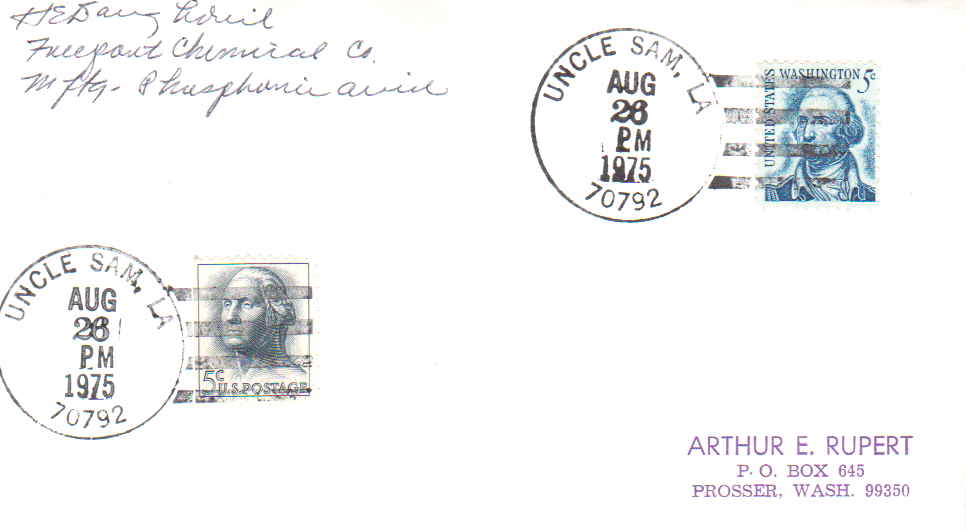 Freeport Chemical Co.
Mfg. Phosphoric acid
UNCLE SAM, LA
AUG
26
PM
1975
70792
UNITED STATES
WASHINGTON 5c
UNCLE SAM, LA
AUG
26
PM
1975
70792
5c
U.S. POSTAGE
ARTHUR E. RUPERT
P. O. BOX 645
PROSSER, WASH. 99350